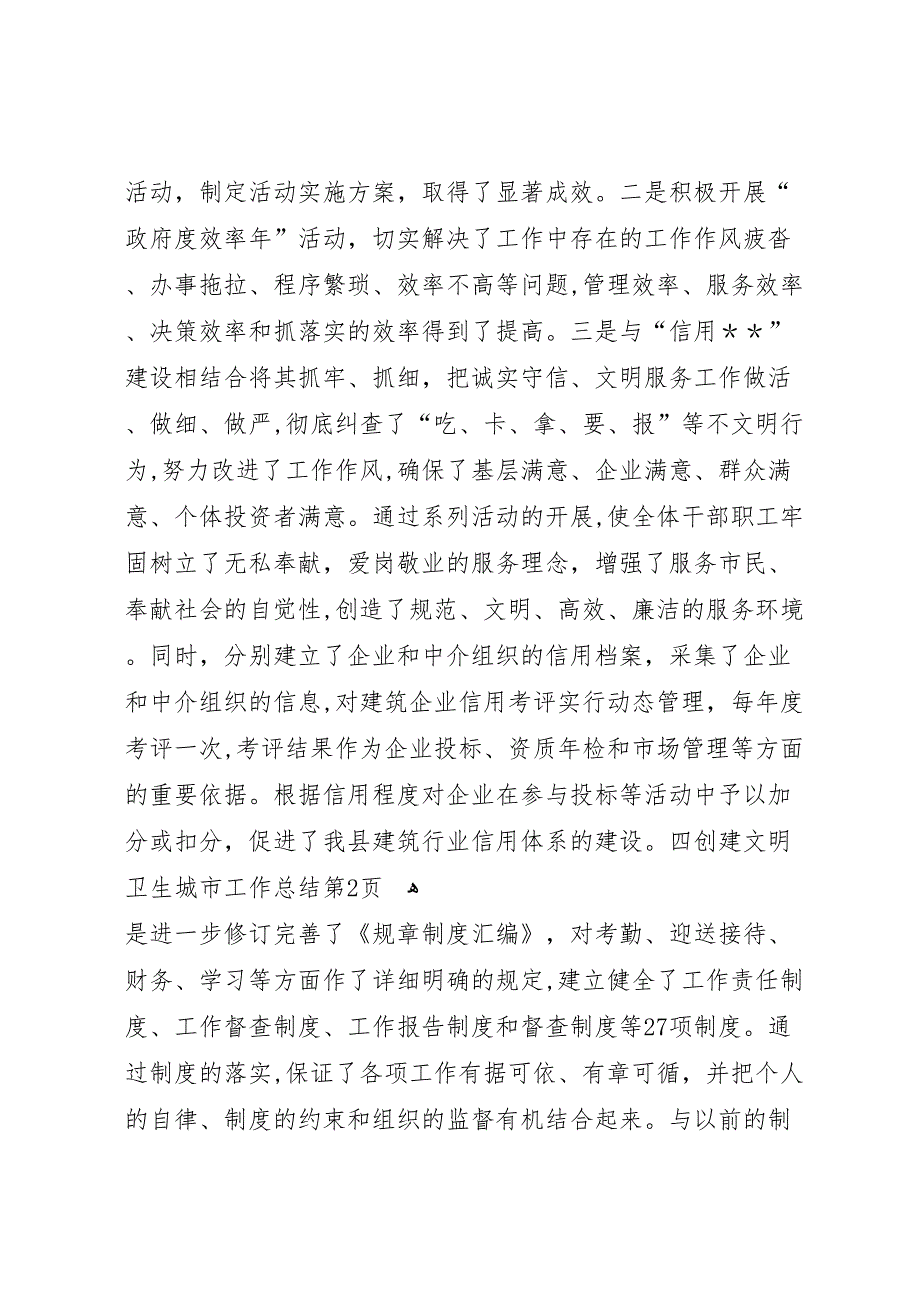 活动，制定活动实施方案，取得了显著成效。二是积极开展“
政府度效率年”活动，切实解决了工作中存在的工作作风疲沓
、办事拖拉、程序繁琐、效率不高等问题,管理效率、服务效率
、决策效率和抓落实的效率得到了提高。三是与“信用＊＊”
建设相结合将其抓牢、抓细，把诚实守信、文明服务工作做活
、做细、做严,彻底纠查了“吃、卡、拿、要、报”等不文明行
为,努力改进了工作作风,确保了基层满意、企业满意、群众满
意、个体投资者满意。通过系列活动的开展,使全体干部职工牢
固树立了无私奉献，爱岗敬业的服务理念，增强了服务市民、
奉献社会的自觉性,创造了规范、文明、高效、廉洁的服务环境
。同时，分别建立了企业和中介组织的信用档案，采集了企业
和中介组织的信息,对建筑企业信用考评实行动态管理，每年度
考评一次,考评结果作为企业投标、资质年检和市场管理等方面
的重要依据。根据信用程度对企业在参与投标等活动中予以加
分或扣分，促进了我县建筑行业信用体系的建设。四创建文明
卫生城市工作总结第2页 ﻫ
是进一步修订完善了《规章制度汇编》，对考勤、迎送接待、
财务、学习等方面作了详细明确的规定,建立健全了工作责任制
度、工作督查制度、工作报告制度和督查制度等27项制度。通
过制度的落实,保证了各项工作有据可依、有章可循，并把个人
的自律、制度的约束和组织的监督有机结合起来。与以前的制